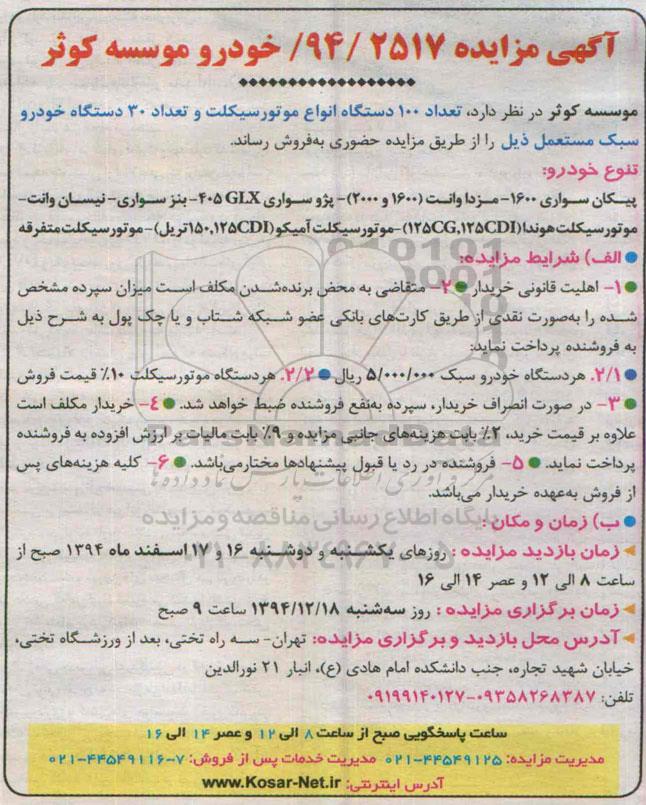 آگهی مزایده ۲۵۱۷ /۹۴/ خودرو موسسه کوثر
موسسه کوثر در نظر دارد، تعداد ۱۰۰ دستگاه انواع موتورسیکلت و تعداد ۳۰ دستگاه خودرو
سبک مستعمل ذیل را از طریق مزایده حضوری به‌فروش رساند.
تنوع خودرو:
پیکان سواری ۱۶۰۰- مزدا وانت (۱۶۰۰ و ۲۰۰۰)- پژو سواری ۴۰۵ GLX- بنز سواری- نیسان وانت-
موتورسیکلت هوندا (۱۲۵CG,۱۲۵CDI)- موتورسیکلت آمیکو (۱۵۰,۱۲۵CDIتریل)- موتورسیکلت متفرقه
● الف) شرایط مزایده:
●۱- اهلیت قانونی خریدار ●۲- متقاضی به محض برنده‌شدن مکلف است میزان سپرده مشخص
شده را به‌صورت نقدی از طریق کارت‌های بانکی عضو شبکه شتاب و یا چک پول به شرح ذیل
به فروشنده پرداخت نماید:
●۲/۱. هردستگاه خودرو سبک ۵/۰۰۰/۰۰۰ ریال ●۲/۲. هردستگاه موتورسیکلت ۱۰٪ قیمت فروش
●۳- در صورت انصراف خریدار، سپرده به‌نفع فروشنده ضبط خواهد شد. ●۴- خریدار مکلف است
علاوه بر قیمت خرید، ۲٪ بابت هزینه‌های جانبی مزایده و ۹٪ بابت مالیات بر ارزش افزوده به فروشنده
پرداخت نماید. ●۵- فروشنده در رد یا قبول پیشنهادها مختارمی‌باشد. ●۶- کلیه هزینه‌های پس
از فروش به‌عهده خریدار می‌باشد.
● ب) زمان و مکان :
زمان بازدید مزایده : روزهای یکشنبه و دوشنبه ۱۶ و ۱۷ اسفند ماه ۱۳۹۴ صبح از
ساعت ۸ الی ۱۲ و عصر ۱۴ الی ۱۶
زمان برگزاری مزایده : روز سه‌شنبه ۱۳۹۴/۱۲/۱۸ ساعت ۹ صبح
آدرس محل بازدید و برگزاری مزایده: تهران- سه راه تختی، بعد از ورزشگاه تختی،
خیابان شهید تجاره، جنب دانشکده امام هادی (ع)، انبار ۲۱ نورالدین
تلفن: ۰۹۳۵۸۲۶۸۳۸۷-۰۹۱۹۹۱۴۰۱۲۷
ساعت پاسخگویی صبح از ساعت ۸ الی ۱۲ و عصر ۱۴ الی ۱۶
مدیریت مزایده: ۴۴۵۴۹۱۲۵-۰۲۱ مدیریت خدمات پس از فروش: ۷-۴۴۵۴۹۱۱۶-۰۲۱
آدرس اینترنتی: www.Kosar-Net.ir